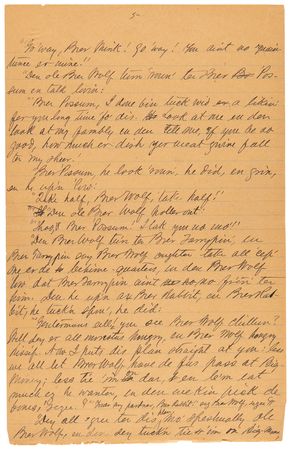 5
"Go 'way, Brer Mink! Go way! You aint no quain-
tence er mine!"
"Den ole Brer Wolf turn 'roun' ter Brer Pos-
sum en talk lovin:
"'Brer Possum, I done bin tuck wid er a likin'
fer you long time fo' dis. Look at me en den
look at my fambly en den tell me, ef you be so
good, how much er dish yer meat gwine fall
ter my sheer.'
"Brer Possum, he look 'roun', he did, en grin,
en he up'n 'low:
"'Take half, Brer Wolf, take half!'
"Den ole Brer Wolf holler out:
"'Brer Possum! I ask you no mo'!'
"Den Brer Wolf turn ter Brer Tarrypin, en
Brer Tarrypin say Brer Wolf oughter take all cep'
one er de behime quarters, en den Brer Wolf
'low dat Brer Tarrypin aint no kin ter
him. Den he up'n ax Brer Rabbit, en Brer Rab-
bit, he tuck'n 'spon', he did:
"'Gentermens all, you see Brer Wolf chillun?
Dey er all monstus hongry, en Brer Wolf hongry
hisse'f. Now I puts dis plan straight at you: less
we all let Brer Wolf have de fus pass at Big-
Money; less tie 'im dar, en let 'im eat
much ez he wanter, en den we kin pick de
bones,' sezee.
Dey all 'gree ter dis, mo' speshually ole
Brer Wolf, en den dey tuck'n tie 'im on Big-Money,